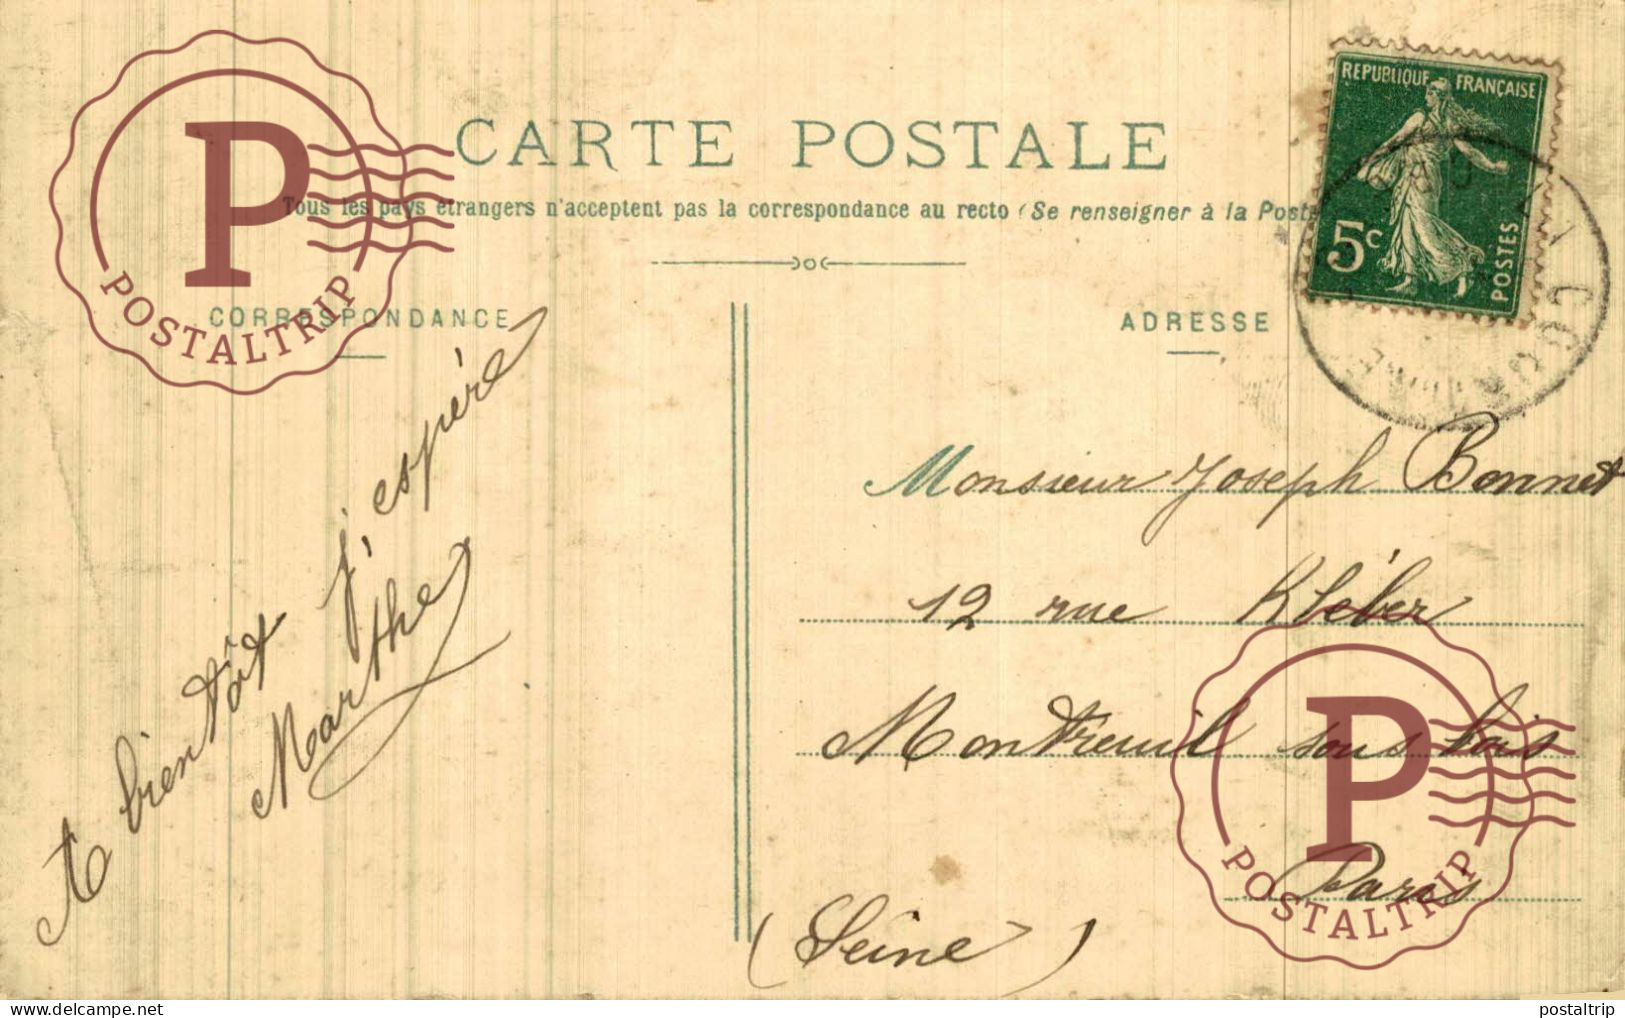 CARTE POSTALE
Tous les pays étrangers n'acceptent pas la correspondance au recto (Se renseigner à la Poste
CORRESPONDANCE
ADRESSE
REPUBLIQUE FRANÇAISE
5c
POSTES
A bientôt j'espère
Marthe
Monsieur Joseph Bonnet
12 rue Kléber
Montreuil sous bois
Paris
(Seine)
P
POSTALTRIP
P
POSTALTRIP
delcampe.net
postaltrip